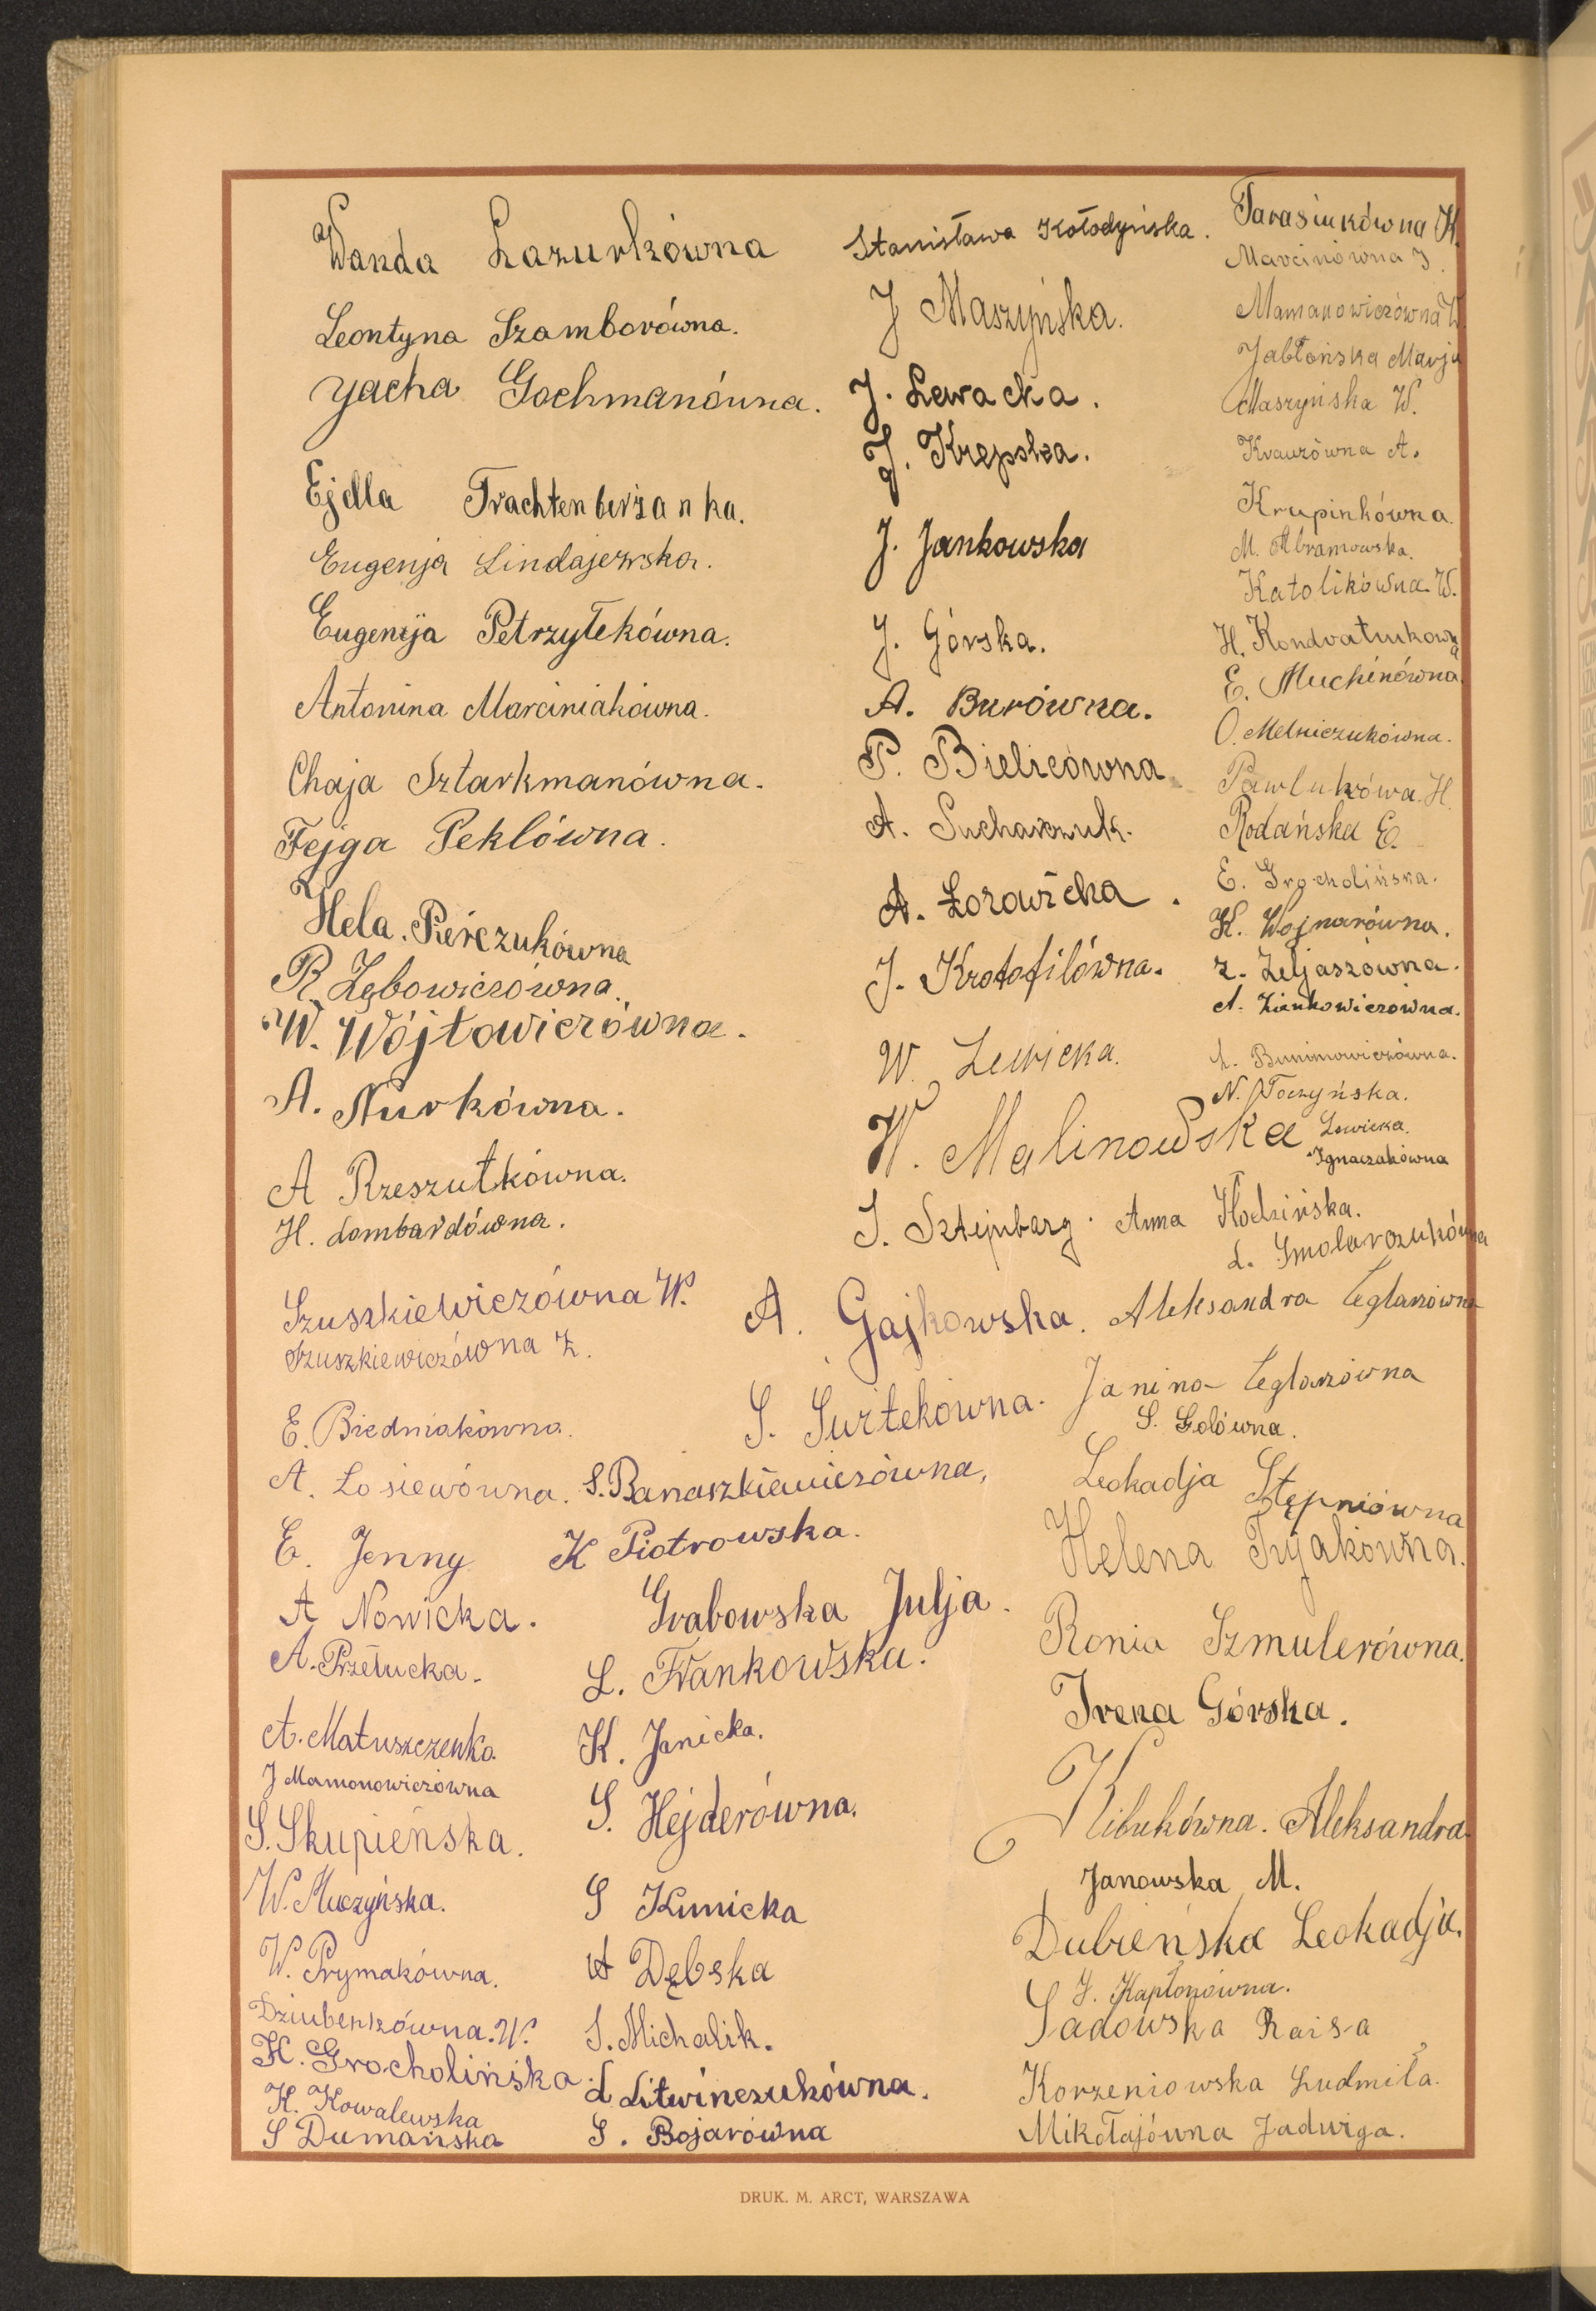 Wanda Łazurkówna
Leontyna Szamborówna.
Jacha Gochmanówna.
Ejdla Trachtenberżanka.
Eugenja Lindajewska.
Eugenija Petrzyłekówna.
Antonina Marciniakówna.
Chaja Sztarkmanówna.
Fejga Peklówna.
Hela Pierczukówna
R. Zębowiczówna.
W. Wójtowiczówna.
A. Nurkówna.
A Rzeszutkówna.
H. Lombardówna.
Szuszkiewiczówna W.
Szuszkiewiczówna Z.
E. Biedniakówna.
A. Łosiewówna.
E. Jenny
A Nowicka.
A. Przełucka.
A. Matuszczenko.
J Mamonowiczówna
S. Skupieńska.
W. Muczyńska.
W. Prymakówna.
Dziubenkówna. W.
K. Grocholińska
K. Kowalewska
S Dumańska
Stanisława Kołodyńska.
J Maszyńska.
J. Lewacka.
J. Krępska.
J. Jankowska
J. Górska.
A. Burówna.
P. Bielicówna.
A. Sucharczuk.
A. Łozowicka.
J. Krotofilówna.
W. Lewicka.
W. Malinowska
J. Sztejnberg.
A. Gajkowska.
S. Surtekówna.
S. Banaszkiewiczówna,
K Piotrowska.
Grabowska Julja.
L. Frankowska.
K. Janicka.
S. Hejderówna.
S Kunicka
A Dębska
S. Michalik.
L Litwinczukówna.
S. Bojarówna
Tarasiukówna H.
Marciniówna J.
Mamanowiczówna W.
Jabłońska Marja
Maszyńska W.
Krauzówna A.
Krupinkówna.
M. Abramowska.
Katolikówna. W.
H. Kondratiukowna
E. Muchinówna
O. Melniczukówna.
Pawlukówa. H.
Rodańska E.
E. Grocholińska.
K. Wojnarówna.
Z. Zeljaszówna.
A. Zienkowiczówna.
L. Bunimowiczówna.
N. Toczyńska.
Lewicka.
Ignaczakówna
Anna Hłodzińska.
L. Smolarczukówna
Aleksandra Ceglarzówna
Janina Ceglarzówna
S. Golówna.
Leokadja Stępniówna
Helena Tryjakówna.
Ronia Szmulerówna.
Irena Górska.
Kibukówna. Aleksandra.
Janowska M.
Dubieńska Leokadja.
J. Kapłonówna.
Sadowska Raisa
Korzeniowska Ludmiła.
Mikołajówna Jadwiga.
DRUK. M. ARCT, WARSZAWA